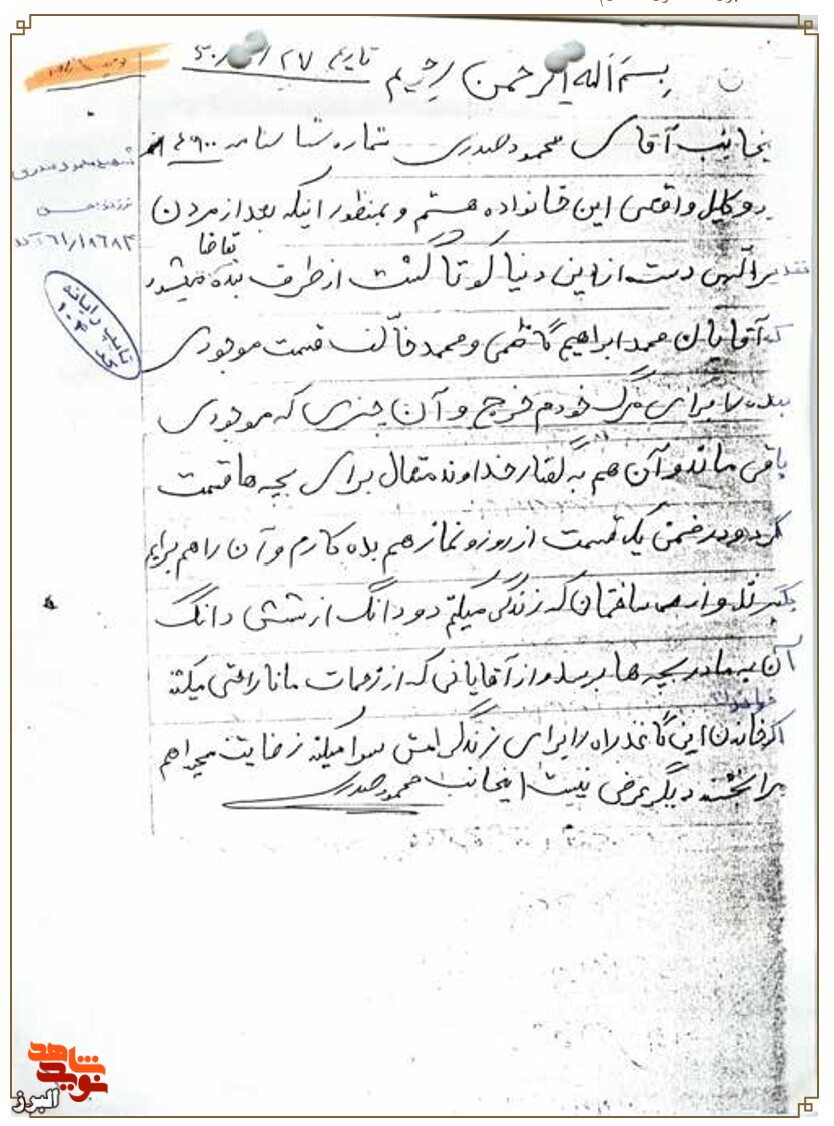 بسم اله الرحمن رحیم تاریخ ۲۷
اینجانب آقای محمود صدری شماره شناسنامه ۴۹۰۰
وکیل واقعی این خانواده هستم و بمنظور اینکه بعد از مردن
تقدیر الهی دست از این دنیا کوتا گشت از طرف بنده تقاضا میشود
که آقایان محمد ابراهیم کاظمی و محمد قسمت موجودی
بنده را برای مرگ خودم خرج و آن چیزی که موجودی
باقی ماند و آن هم به گفتار خداوند متعال برای بچه ها قسمت
گردد و در ضمن یک قسمت از روزه و نماز هم بده کارم و آن را هم برایم
بگیرند و از ساختمان که زندگی میکنم دو دانگ از ششی دانگ
آن به مادر بچه ها برسد و از آقایانی که از زحمات ما ناراحتی میکشند
خواندن این کاغذ راه را برای زندگی میکند رضایت میخواهم
مرا بخشند دیگر عرضی نیست اینجانب محمود صدری
شهید محمود صدری
فرزند: حسن
تایپ رایانه
کد ۱۰۴
نوید شاهد
البرز